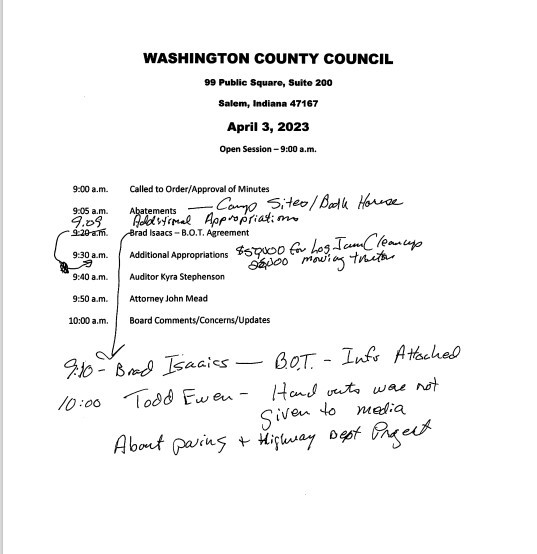 WASHINGTON COUNTY COUNCIL
99 Public Square, Suite 200
Salem, Indiana 47167
April 3, 2023
Open Session – 9:00 a.m.
9:00 a.m. Called to Order/Approval of Minutes
9:05 a.m. Abatements — Camp Sites/Bath House
9:09 Additional Appropriations
9:20 a.m. Brad Isaacs – B.O.T. Agreement
9:30 a.m. Additional Appropriations $50,000 for Log Jam Cleanup
mowing tractor
9:40 a.m. Auditor Kyra Stephenson
9:50 a.m. Attorney John Mead
10:00 a.m. Board Comments/Concerns/Updates
9:10 – Brad Isaacs — B.O.T. – Info Attached
10:00 Todd Ewen – Hand outs were not
given to media
About paving + Highway Dept Project